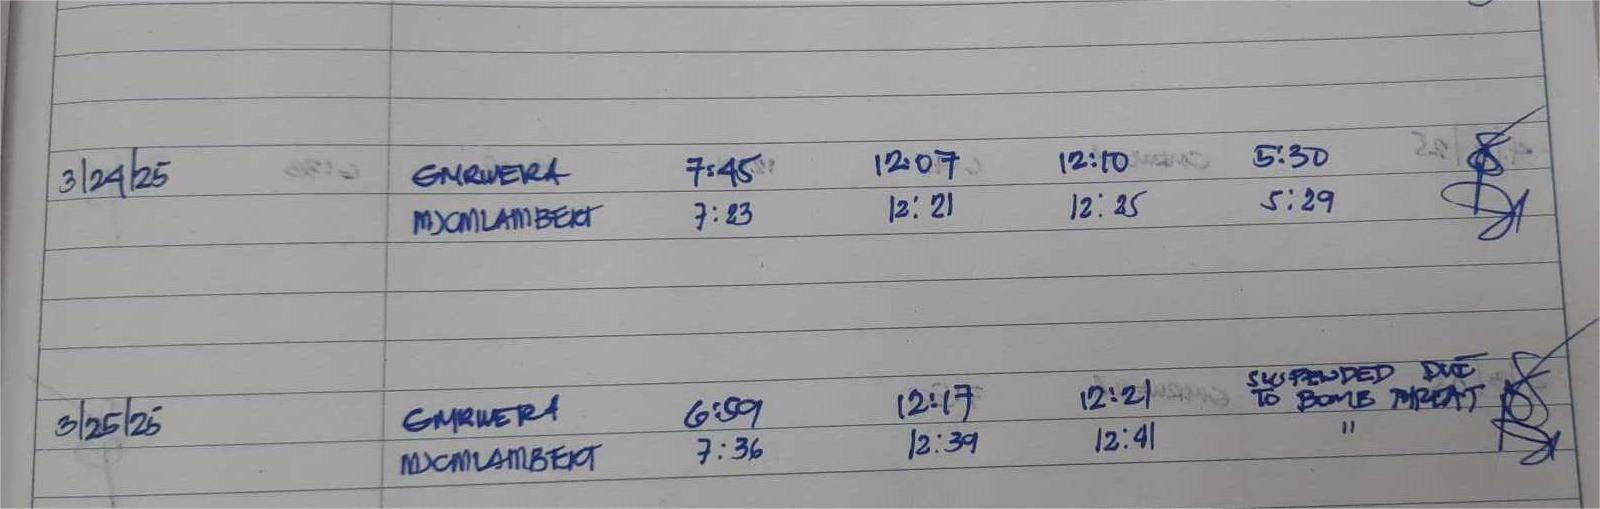 3/24/25 GMRIVERA 7:45 12:07 12:10 5:30
MJCMLAMBERT 7:23 12:21 12:25 5:29
3/25/25 GMRIVERA 6:59 12:17 12:21 SUSPENDED DUE
TO BOMB THREAT
MJCMLAMBERT 7:36 12:39 12:41 "